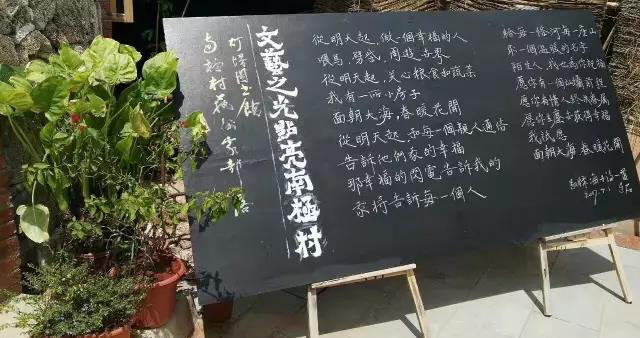 灯塔圖书館
南極村
文藝之光點亮南極村
從明天起,做一個幸福的人
喂馬,劈柴,周遊世界
從明天起,关心粮食和蔬菜
我有一所小房子
面朝大海,春暖花開
從明天起,和每一個親人通信
告訴他們我的幸福
那幸福的閃電告訴我的
我将告訴每一個人
給每一條河每一座山
取一個温暖的名字
陌生人,我也為你祝福
愿你有一個燦爛前程
愿你有情人終成眷屬
愿你在塵世获得幸福
我祇愿
面朝大海,春暖花開
海子詩一首